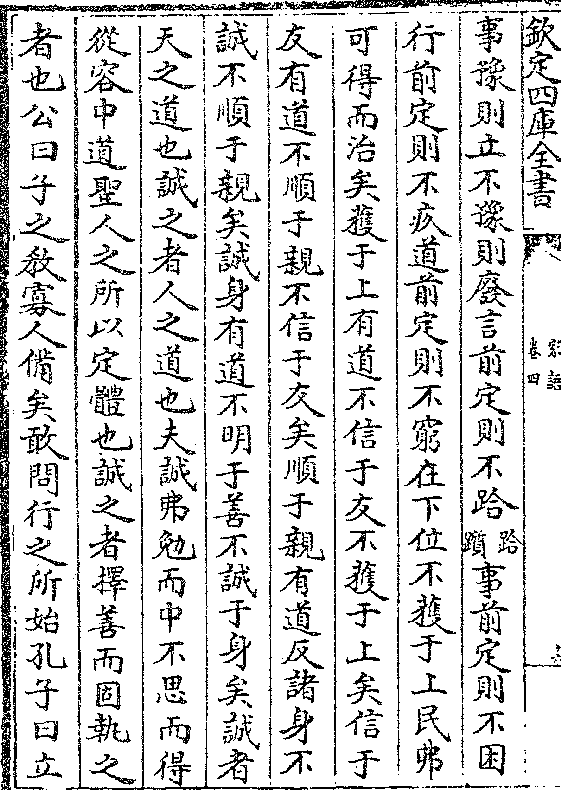 欽定四庫全書
家語
卷四
事豫則立不豫則廢言前定則不跲跲躓事前定則不困
行前定則不疚道前定則不窮在下位不獲于上民弗
可得而治矣獲于上有道不信于友不獲于上矣信于
友有道不順于親不信于友矣順于親有道反諸身不
誠不順于親矣誠身有道不明于善不誠于身矣誠者
天之道也誠之者人之道也夫誠弗勉而中不思而得
從容中道聖人之所以定體也誠之者擇善而固執之
者也公曰子之敎寡人備矣敢問行之所始孔子曰立